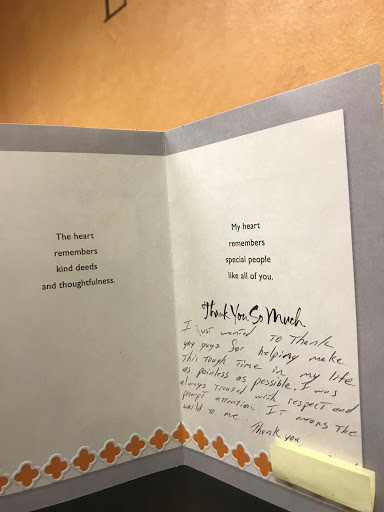 The heart
remembers
kind deeds
and thoughtfulness.
My heart
remembers
special people
like all of you.
Thank You So Much
I just wanted to Thank
you guys for helping make
This tough Time in my life
as painless as possible. I was
always treated with respect and
prompt attention. IT means The
world to me.
Thank you